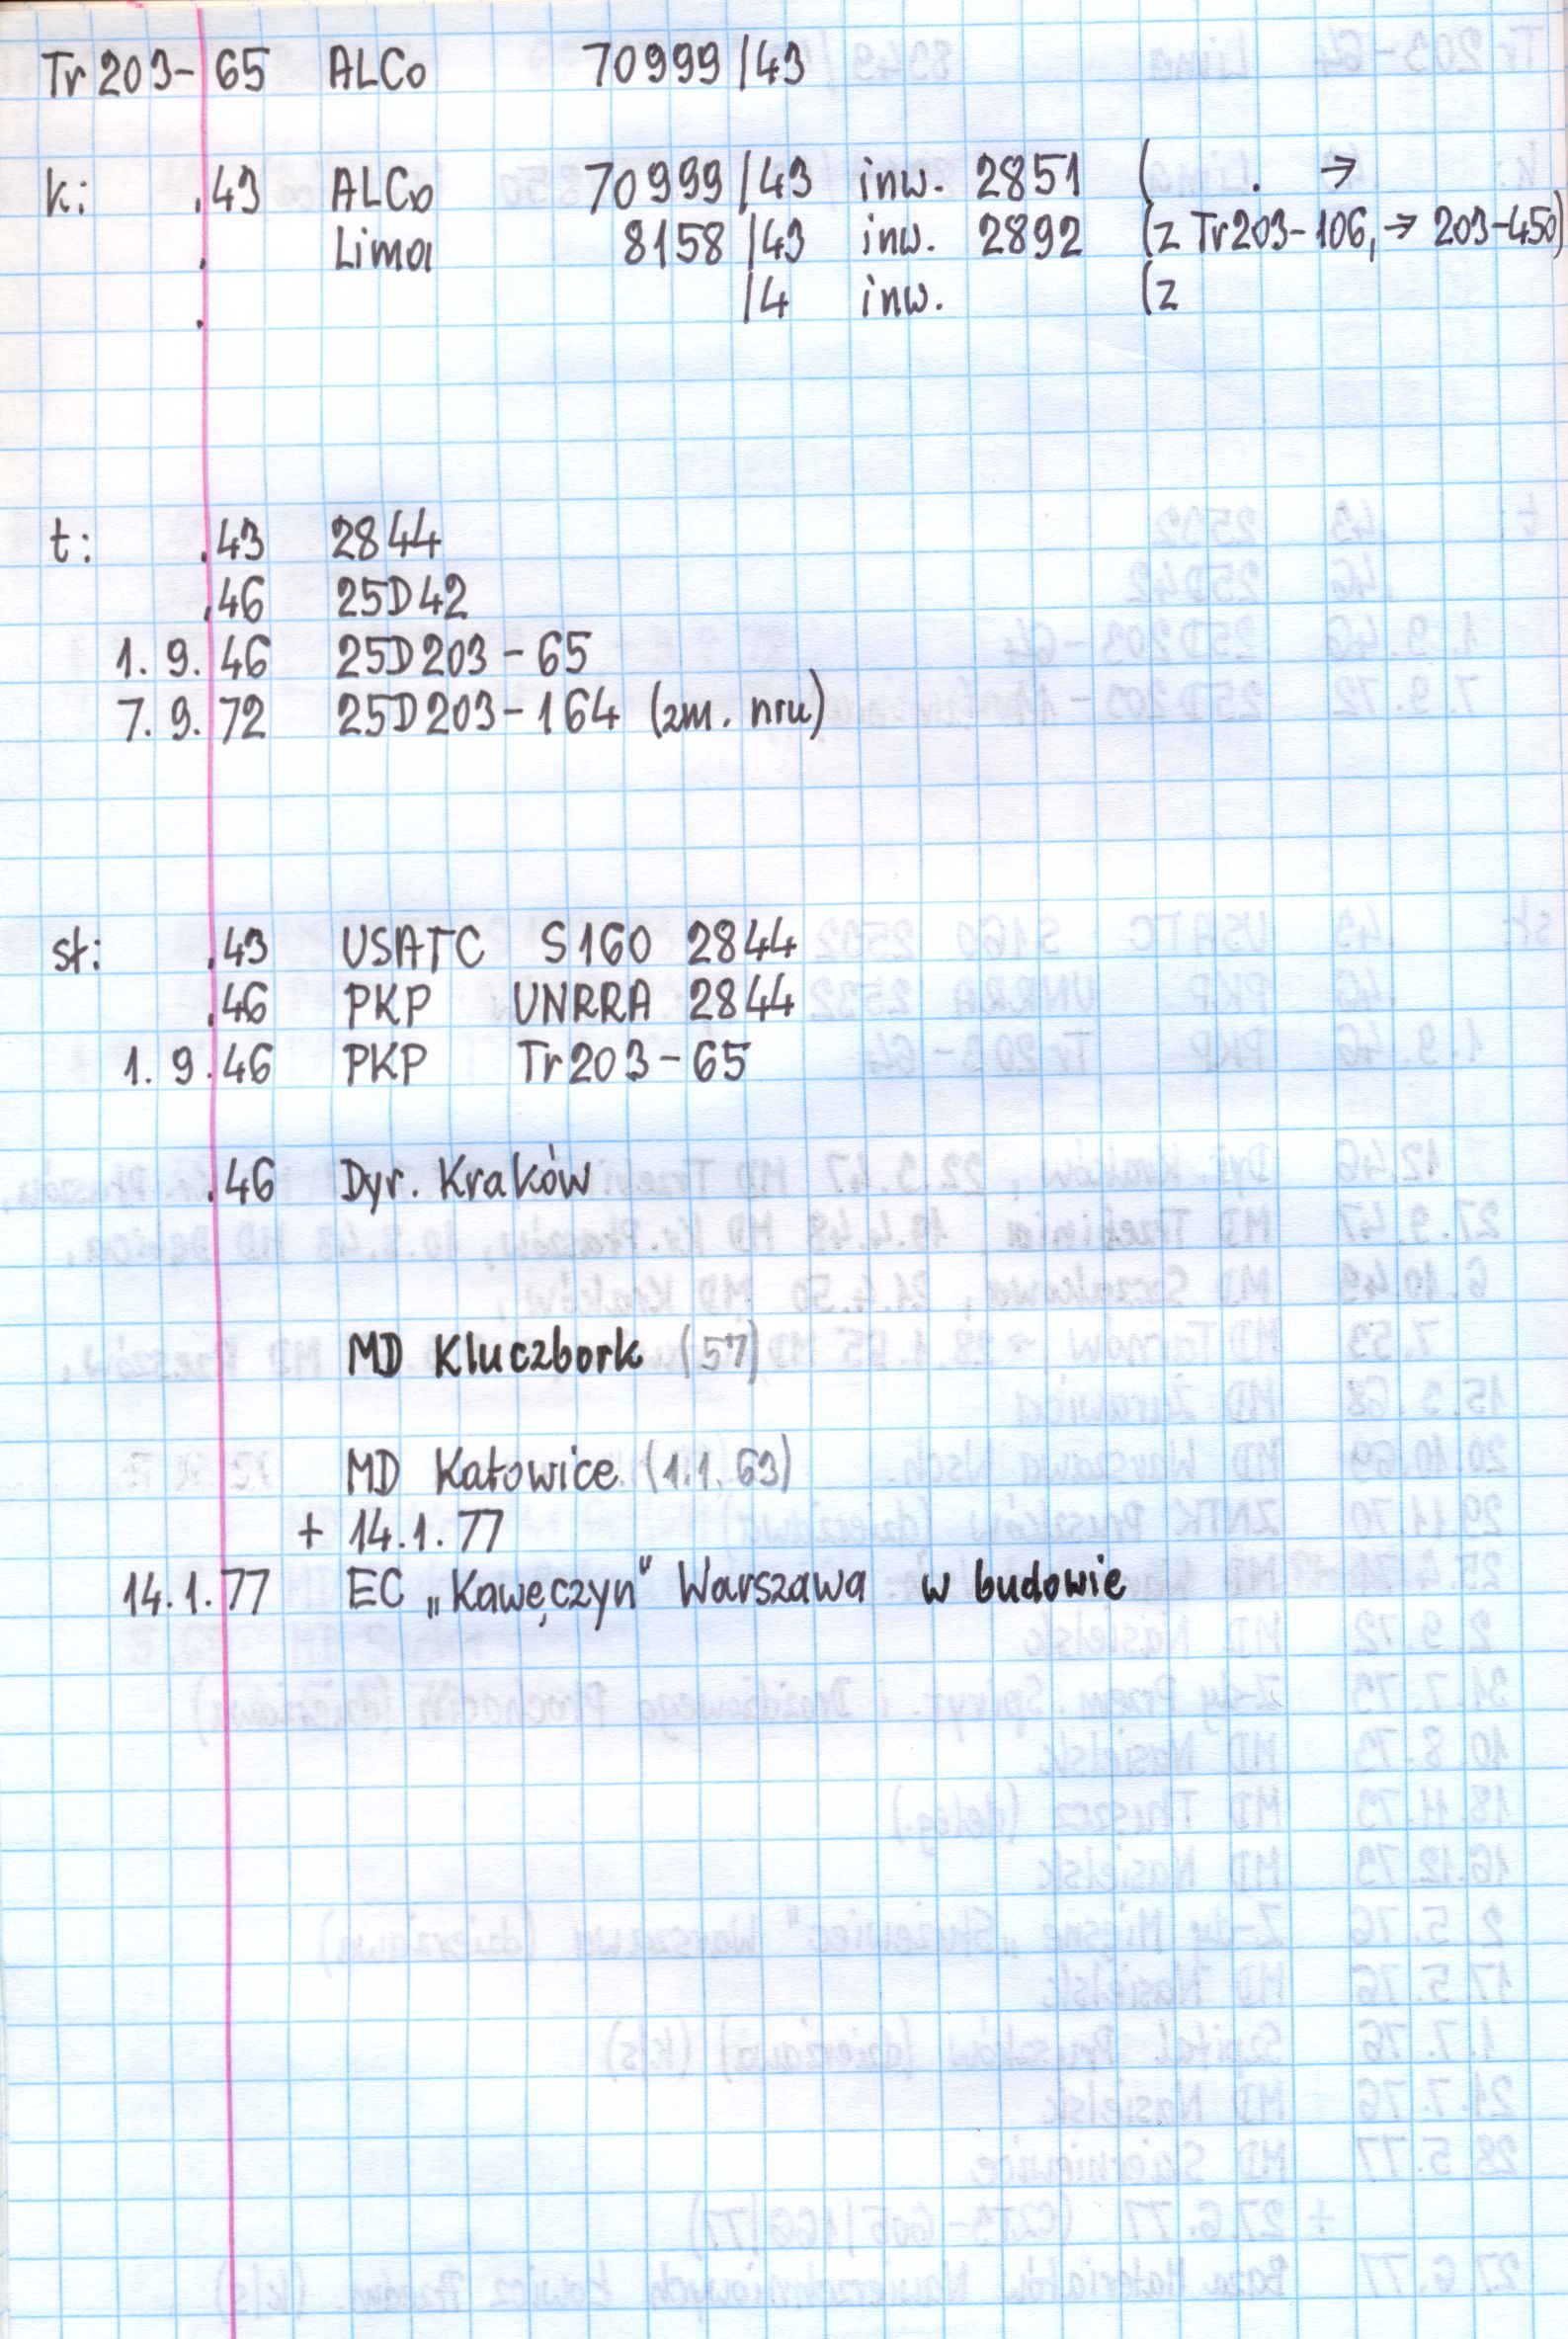 Tr 203-65 ALCo 70999/43
k: .43 ALCo 70999/43 inw. 2851 ( . →
. Lima 8158/43 inw. 2892 (z Tr203-106, → 203-450)
. /4 inw. (z
t: .43 2844
.46 25D42
1. 9. 46 25D203-65
7. 9. 72 25D203-164 (zm. nru)
st: .43 USATC S160 2844
.46 PKP UNRRA 2844
1. 9. 46 PKP Tr203-65
.46 Dyr. Kraków
MD Kluczbork (57)
MD Katowice (1.1.63)
+ 14.1.77
14.1.77 EC „Kawęczyn" Warszawa w budowie